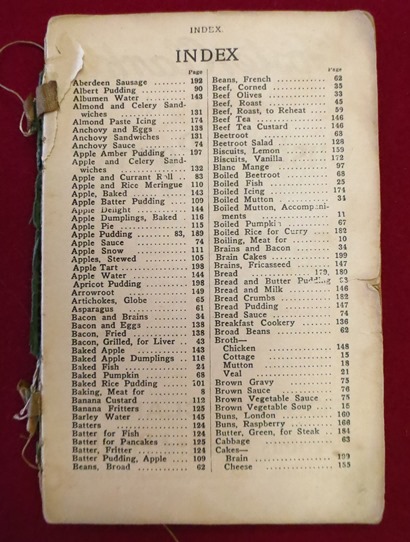 INDEX.
INDEX
Page
Aberdeen Sausage ........ 192
Albert Pudding ........ 90
Albumen Water ........ 143
Almond and Celery Sand-
wiches ........ 131
Almond Paste Icing ........ 174
Anchovy and Eggs ........ 135
Anchovy Sandwiches ........ 131
Anchovy Sauce ........ 74
Apple Amber Pudding .. 197
Apple and Celery Sand-
wiches ........ 132
Apple and Currant Roll .. 83
Apple and Rice Meringue 110
Apple, Baked ........ 143
Apple Batter Pudding .. 109
Apple Delight ........ 144
Apple Dumplings, Baked . 116
Apple Pie ........ 115
Apple Pudding ...... 83, 189
Apple Sauce ........ 74
Apple Snow ........ 111
Apples, Stewed ........ 105
Apple Tart ........ 198
Apple Water ........ 144
Apricot Pudding ........ 198
Arrowroot ........ 149
Artichokes, Globe ........ 65
Asparagus ........ 61
Bacon and Brains ........ 34
Bacon and Eggs ........ 138
Bacon, Fried ........ 138
Bacon, Grilled, for Liver .. 43
Baked Apple ........ 143
Baked Apple Dumplings .. 116
Baked Fish ........ 24
Baked Pumpkin ........ 68
Baked Rice Pudding .... 101
Baking, Meat for ........ 8
Banana Custard ........ 112
Banana Fritters ........ 125
Barley Water ........ 145
Batters ........ 124
Batter for Fish ........ 124
Batter for Pancakes ...... 125
Batter, Fritter ........ 124
Batter Pudding, Apple .. 109
Beans, Broad ........ 62
Page
Beans, French ........ 62
Beef, Corned ........ 35
Beef Olives ........ 33
Beef, Roast ........ 45
Beef, Roast, to Reheat .... 59
Beef Tea ........ 146
Beef Tea Custard ........ 146
Beetroot ........ 68
Beetroot Salad ........ 128
Biscuits, Lemon ........ 159
Biscuits, Vanilla ........ 172
Blanc Mange ........ 97
Boiled Beetroot ........ 68
Boiled Fish ........ 25
Boiled Icing ........ 174
Boiled Mutton ........ 34
Boiled Mutton, Accompani-
ments ........ 11
Boiled Pumpkin ........ 67
Boiled Rice for Curry .... 182
Boiling, Meat for ........ 10
Brains and Bacon ........ 34
Brain Cakes ........ 199
Brains, Fricasseed ...... 147
Bread ........ 179, 180
Bread and Butter Pudding 93
Bread and Milk ........ 146
Bread Crumbs ........ 182
Bread Pudding ........ 147
Bread Sauce ........ 74
Breakfast Cookery ...... 136
Broad Beans ........ 62
Broth—
Chicken ........ 148
Cottage ........ 15
Mutton ........ 18
Veal ........ 21
Brown Gravy ........ 75
Brown Sauce ........ 76
Brown Vegetable Sauce .. 75
Brown Vegetable Soup .... 15
Buns, London ........ 160
Buns, Raspberry ........ 160
Butter, Green, for Steak .. 184
Cabbage ........ 63
Cakes—
Brain ........ 199
Cheese ........ 155